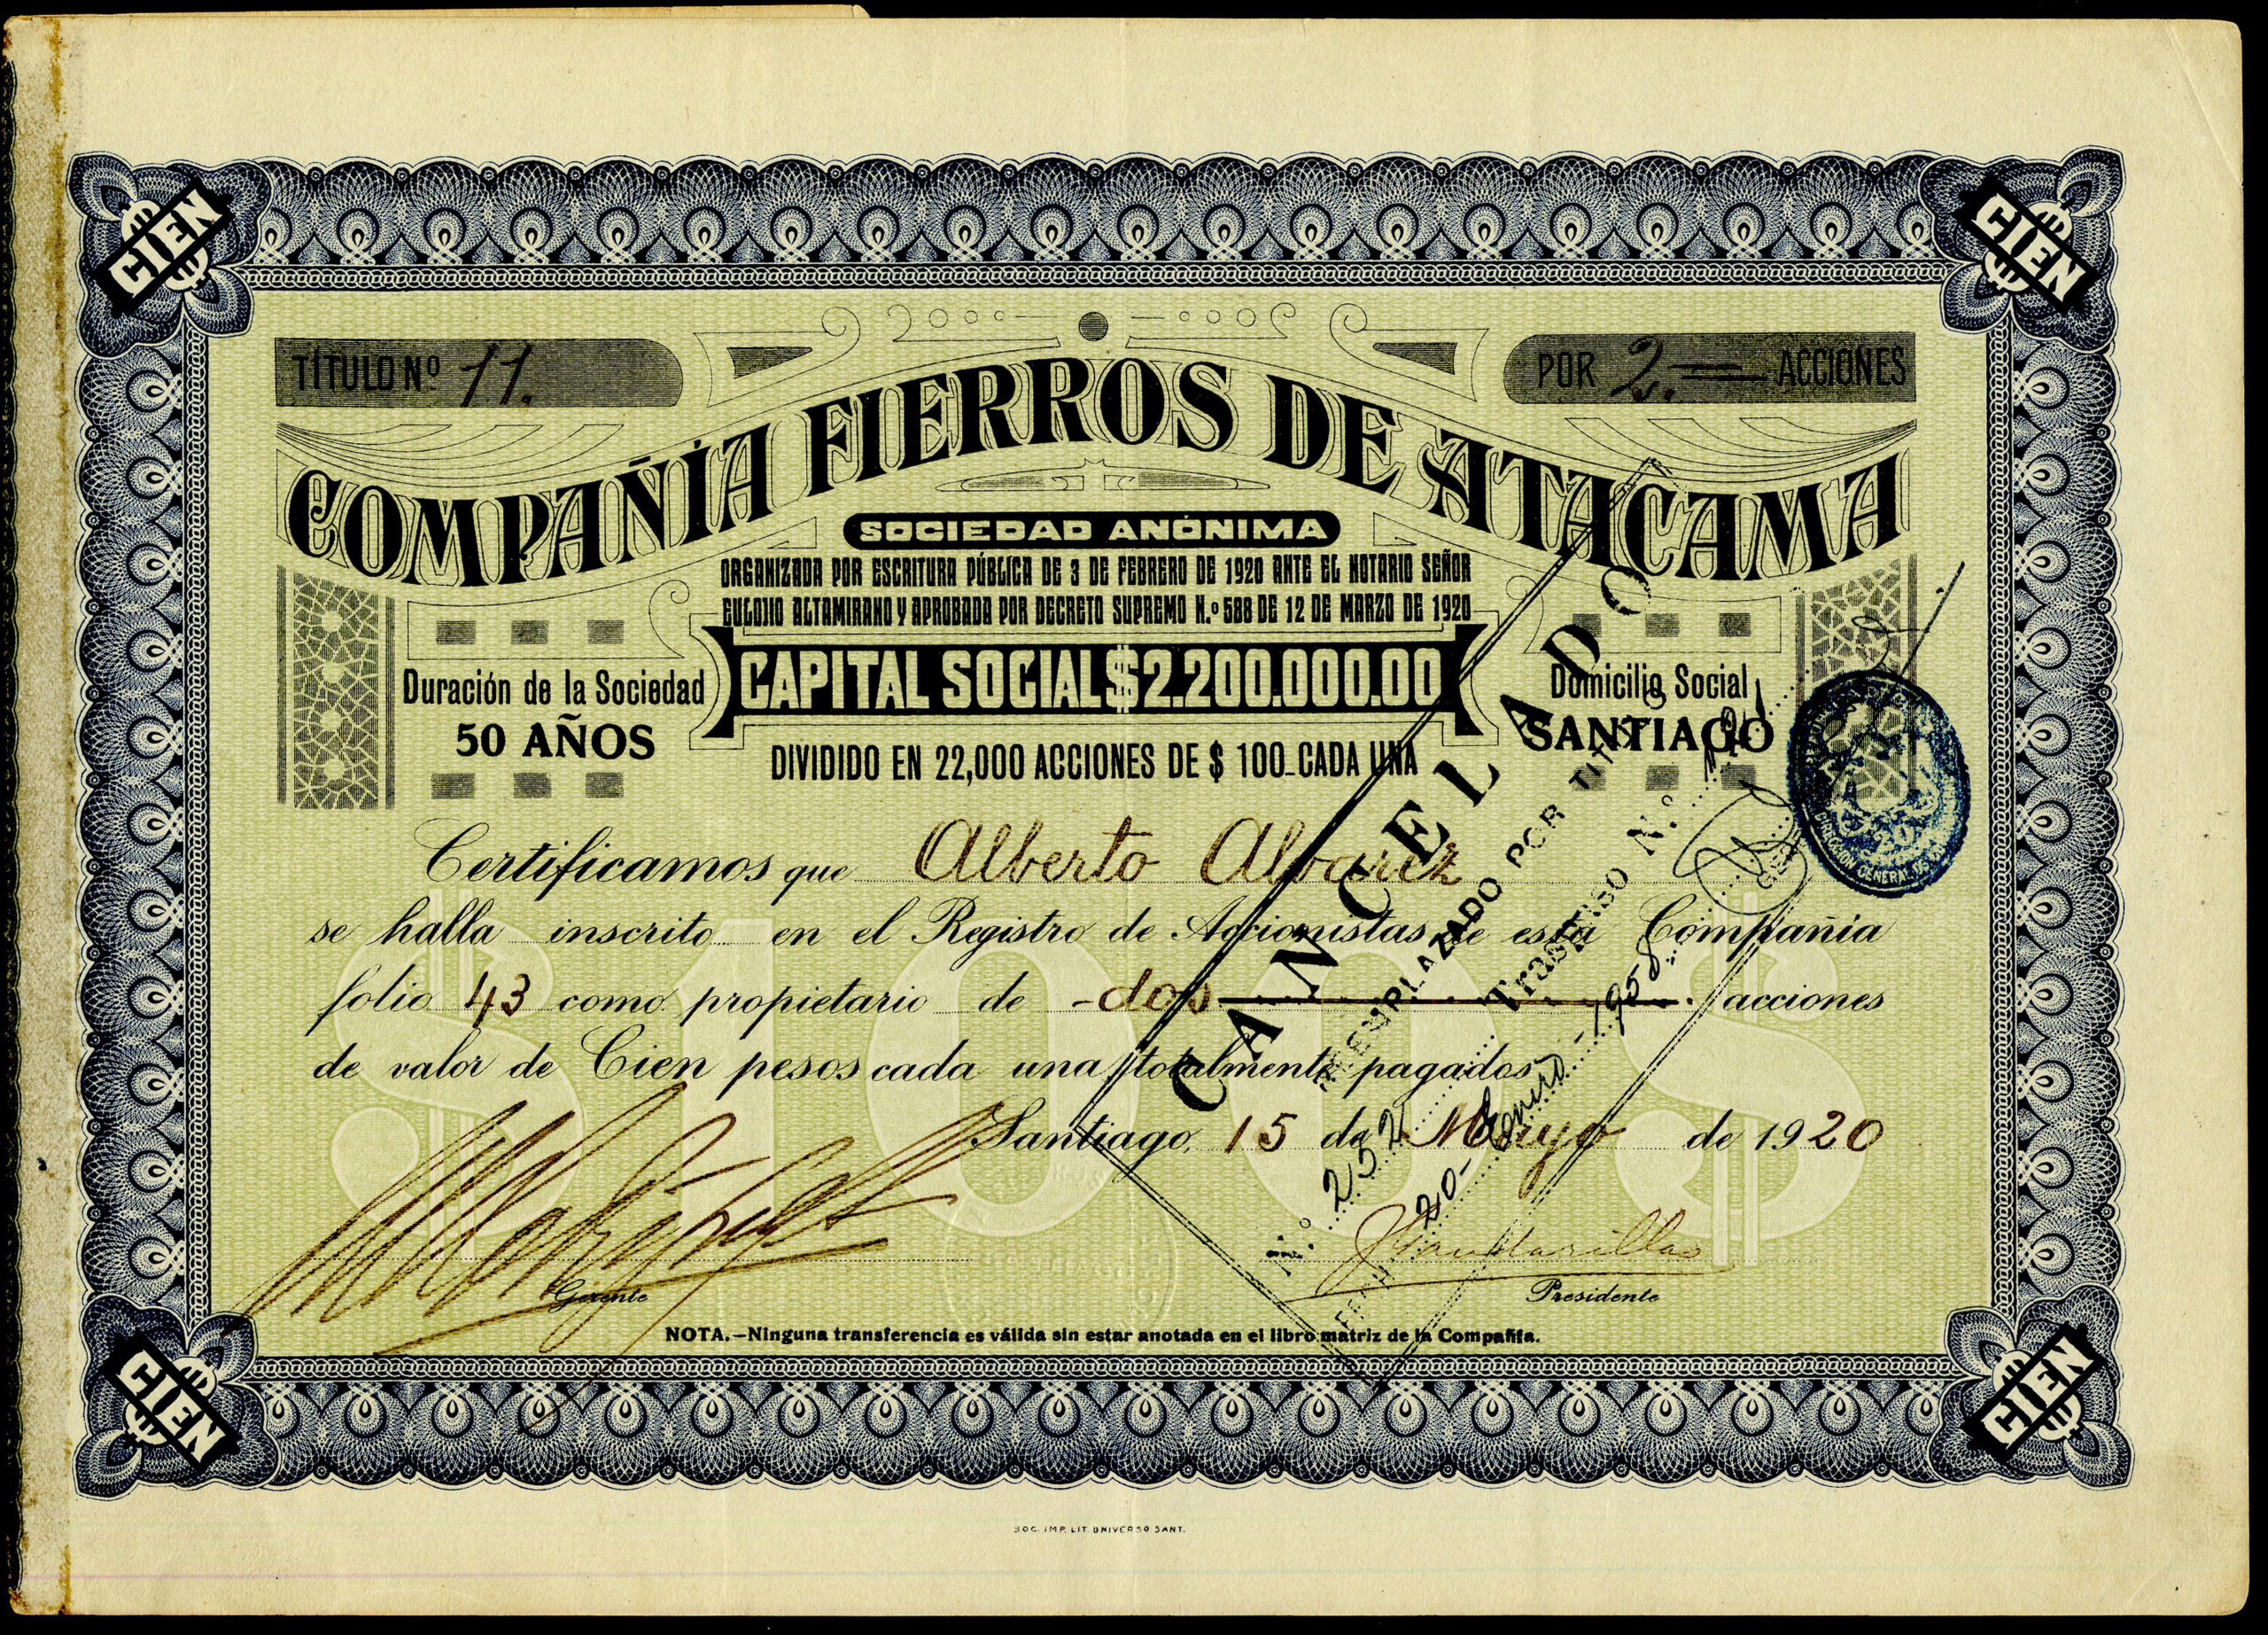 CIEN
CIEN
TÍTULO Nº 11.
POR 2.= ACCIONES
COMPAÑÍA FIERROS DE ATACAMA
SOCIEDAD ANÓNIMA
ORGANIZADA POR ESCRITURA PÚBLICA DE 3 DE FEBRERO DE 1920 ANTE EL NOTARIO SEÑOR
EULOJIO ALTAMIRANO Y APROBADA POR DECRETO SUPREMO N.º 588 DE 12 DE MARZO DE 1920
Duración de la Sociedad
50 AÑOS
CAPITAL SOCIAL $2.200.000.00
DIVIDIDO EN 22,000 ACCIONES DE $ 100 CADA UNA
Domicilio Social
SANTIAGO
Certificamos que Alberto Alvarez
se halla inscrito en el Registro de Accionistas de esta Compañía
folio 43 como propietario de -dos acciones
de valor de Cien pesos cada una totalmente pagados
Santiago, 15 de Mayo de 1920
$100$
Gerente
Presidente
CANCELADO
REEMPLAZADO POR TITULO
N.º 252 Traspaso N.º
FECHA 20- Enero - 1958
GENERAL
NOTA.—Ninguna transferencia es válida sin estar anotada en el libro matriz de la Compañía.
CIEN
CIEN
SOC. IMP. LIT. UNIVERSO SANT.